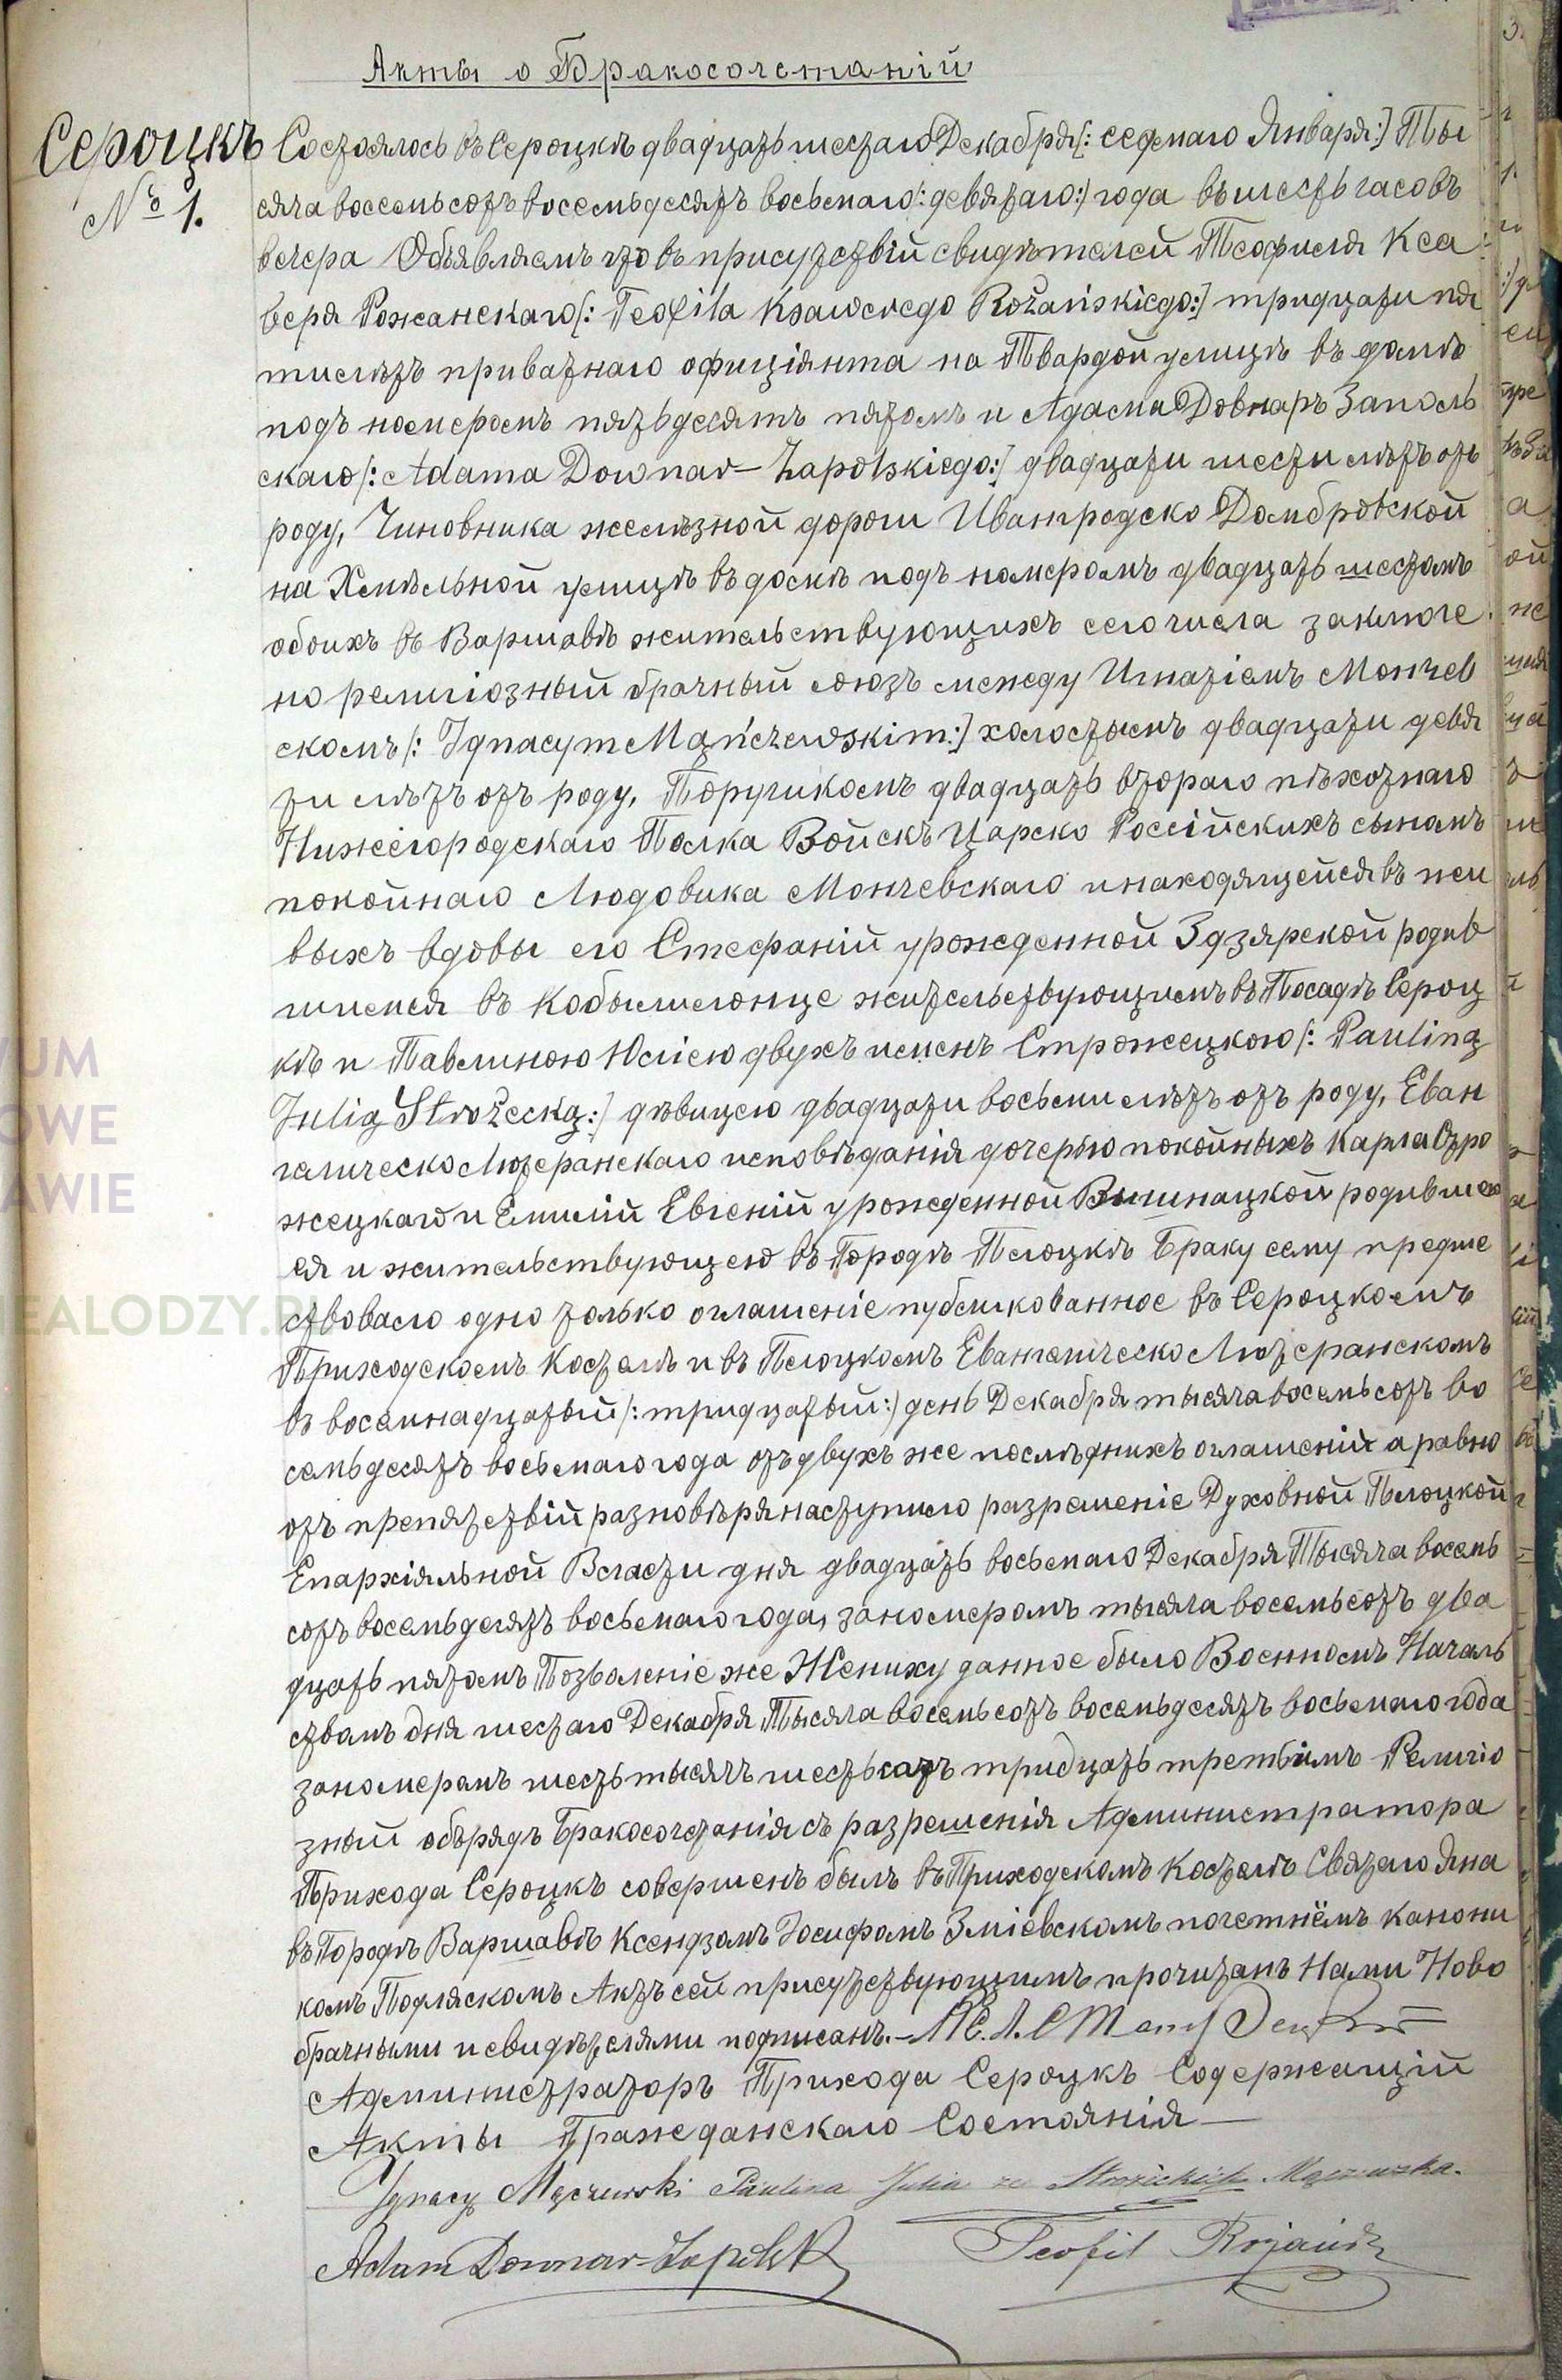 Акты о Бракосочетаній
Сероцкъ
№ 1.
Состоялось въ Сероцкѣ двадцать шестаго Декабря /: седмаго Января :/ Ты
сяча восемьсотъ восемьдесятъ восьмаго /: девятаго :/ года въ шесть часовъ
вечера Объявляемъ что въ присутствіи свидѣтелей Теофиля Кса
веря Рожанскаго /: Teofila Ksawerego Rożańskiego :/ тридцати пя
ти лѣтъ приватнаго офиціянта на Твардой улицѣ въ домѣ
подъ номеромъ пятьдесятъ пятомъ и Адама Довнаръ Заполь
скаго /: Adama Downar-Zapolskiego :/ двадцати шести лѣтъ отъ
роду, Чиновника желѣзной дороги Ивангродско Домбровской
на Хмѣльной улицѣ въ домѣ подъ номеромъ двадцать шестомъ
обоихъ въ Варшавѣ жительствующихъ сего числа заключе
но религіозный брачный союзъ между Игнатіемъ Мончев
скомъ /: Ignacym Mączewskim :/ холостымъ двадцати девя
ти лѣтъ отъ роду, Поручикомъ двадцать втораго пѣхотнаго
Нижегородскаго Полка Войскъ Царско Россійскихъ сыномъ
покойнаго Людовика Мончевскаго и находящейся въ жи
выхъ вдовы его Стефаній урожденной Здзярской родив
шимся въ Кобылилонце жительствующимъ въ Посадѣ Сероц
кѣ и Павлиною Юліею двухъ именъ Строжецкою /: Pauliną
Julią Strożecką :/ дѣвицею двадцати восьми лѣтъ отъ роду, Еван
гелическо Лютеранскаго исповѣданія дочерью покойныхъ Карла Стро
жецкаго и Емилій Евгеній урожденной Вишнацкой родившею
ся и жительствующею въ Городѣ Плоцкѣ Браку сему предше
ствовало одно только оглашеніе публикованное въ Сероцкомъ
Приходскомъ Костелѣ и въ Плоцкомъ Евангелическо Лютеранскомъ
въ восемнадцатый /: тридцатый :/ день Декабря тысяча восемьсотъ во
семьдесятъ восьмаго года отъ двухъ же послѣднихъ оглашеній а равно
отъ препятствій разновѣря наступило разрешеніе Духовной Плоцкой
Епархіяльной Власти дня двадцать восьмаго Декабря Тысяча восемь
сотъ восемьдесятъ восьмаго года, за номеромъ тысяча восемьсотъ два
дцать пятомъ Позволеніе же Жениху данное было Военномъ Началь
ствомъ дня шестаго Декабря Тысяча восемьсотъ восемьдесятъ восьмаго года
за номеромъ шесть тысячъ шестьсотъ тридцать третьимъ Религіо
зный обърядъ Бракосочетанія съ разрешенія Администратора
Прихода Сероцкъ совершенъ былъ въ Приходскомъ Костелѣ Святаго Яна
въ Городѣ Варшавѣ Ксендзомъ Іосифомъ Зміевскомъ почетнёмъ канони
комъ Подляскомъ Актъ сей присутствующимъ прочитанъ Нами Ново
брачными и свидѣтелями подписанъ.-
Администраторъ Прихода Сероцкъ Содержащій
Акты Гражданскаго Состоянія-
Ignacy Mączewski Paulina Julia ze Strożeckich Mączewska.
Adam Downar-Zapolski Teofil Rożański